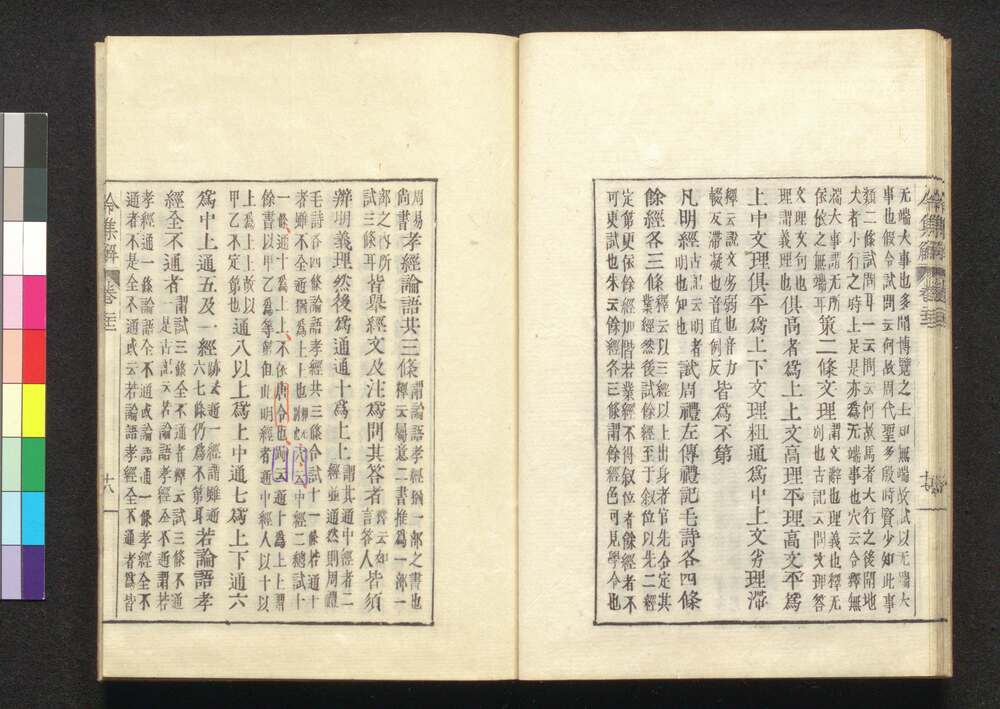 无端大事也多聞博覽之士知無端故試以无端大
事也假令試問云何故周代聖多殷時賢少如此事
類二條試問耳一云問云何故馬者大行之後閇地
犬者小行之時上足是亦爲无端事也穴云令釋無
端大事謂无所
依依之無端耳策二條文理謂文辭也理義也釋无
文理文句也
理謂義理也俱高者爲上上文高理平理高文平爲
上中文理俱平爲上下文理粗通爲中上文劣理滯
釋云說文劣弱也音力
輟反滯凝也音直例反皆爲不第
凡明經古記云明者
明也知也試周禮左傳禮記毛詩各四條
餘經各三條釋云以三經以上出身者官先令定其
業經然後試餘經至于叙位以先二經
定第更依餘經加階若業經不得叙位者餘經者不
可更試也朱云餘經各三條謂餘經色可見學令也
令集解 卷
周易
尚書孝經論語共三條謂論語孝經猶一部之書也
釋云屬意二書推爲一部一
部之内所
試三條耳皆擧經文及注爲問其答者
言答人皆須
辨明義理然後爲通通十爲上上謂其通中經者二
經並通然則周禮
毛詩各四條論語孝經共三條合試十一條若通十
者雖不全通猶爲上上也穴云中經二總試十
一條通十爲上上不依唐令也穴云通十爲上上謂
餘書以甲乙爲等第但此明經者通中經人以十以
上爲上上故以
甲乙不定第也通八以上爲上中通七爲上下通六
爲中上通五及一經跡云通一經謂雖通
六七條仍爲不第耳若論語孝
經全不通者謂試三條全不通者釋云試三條不通
一是古記云若論語孝經全不通謂若
孝經通一條論語全不通或論語通一條孝經全不
通者不是全不通或云若論語孝經全不通者爲皆
令集解 卷
十八